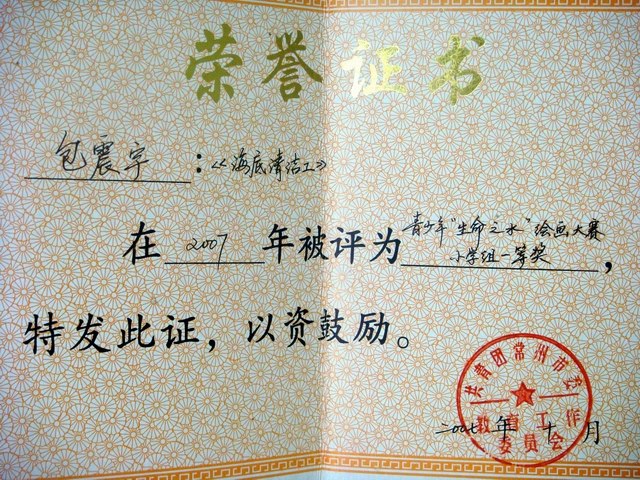 荣誉证书
包震宇：《海底清洁工》
在2007年被评为青少年"生命之水"绘画大赛
小学组一等奖，
特发此证，以资鼓励。
共青团常州市委
教育工作
委员会
二00七年十月